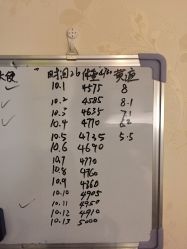 时间 26 体重 黄疸
10.1 4575 8
10.2 4585 8.1
10.3 4635 7.1
10.4 4770 6.2
10.5 4735 5.5
10.6 4690
10.7 4770
10.8 4760
10.9 4860
10.10 4905
10.11 4950
10.12 4910
10.13 5000